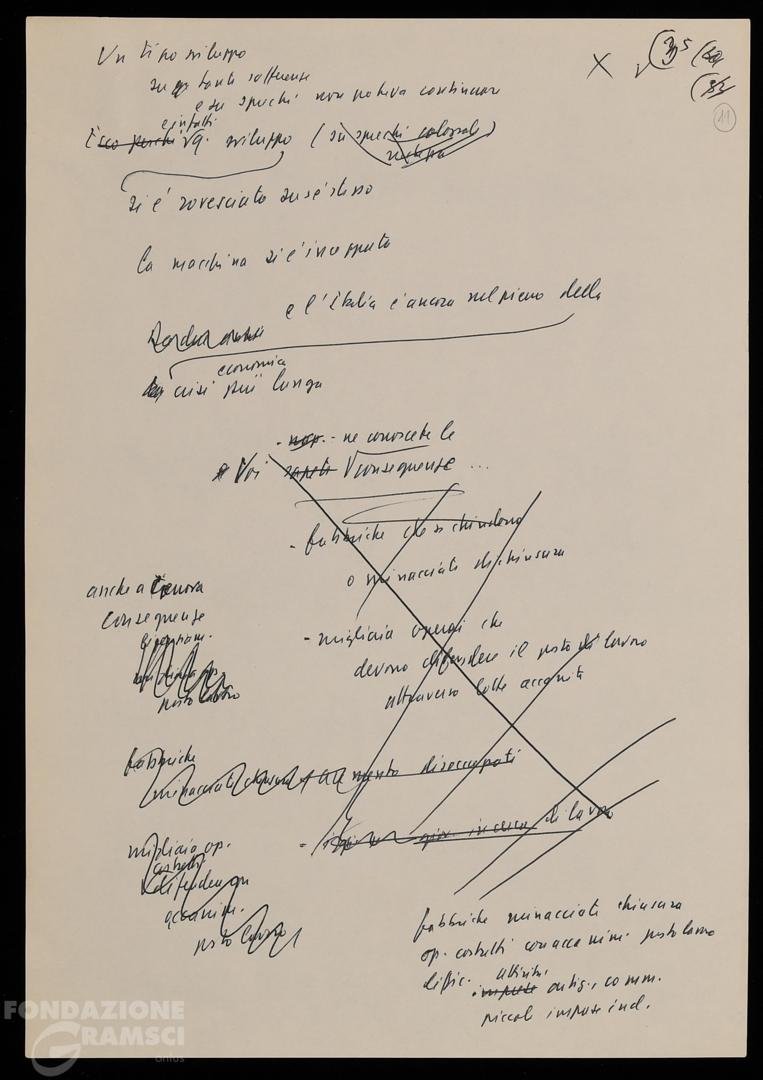 Un tipo sviluppo
su tante sofferenze
e su sprechi non poteva continuare
e infatti
Ecco perché sviluppo (su sprechi colossali)
si è rovesciato su sé stesso
la macchina si è inceppata
e l'Italia è ancora nel pieno della
economica
crisi più lunga
ne conoscete le
Voi sapete conseguenze ...
- fabbriche che si chiudono
o minacciate di chiusura
anche a Genova
conseguenze
- migliaia operai che
devono difendere il posto di lavoro
posto lavoro
attraverso lotte accanite
fabbriche
minacciate chiusura aumento disoccupati
migliaia op.
- giov. in cerca di lavoro
costretti
difendere
accanim.
posto lavoro
fabbriche minacciate chiusura
op. costretti con accanim. posto lavoro
attività
diffic. imprese artig., comm.
piccole imprese ind.
11
FONDAZIONE
GRAMSCI
onlus